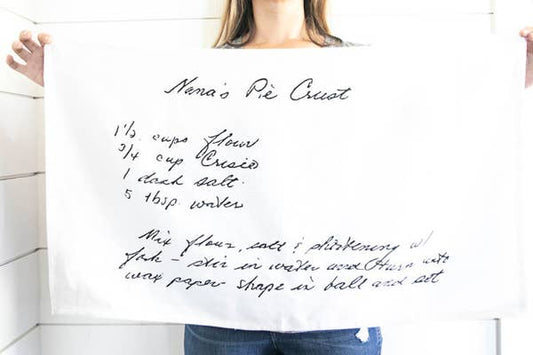 Nana's Pie Crust
1 1/2 cups flour
3/4 cup Crisco
1 dash salt.
5 tbsp. water
Mix flour, salt & shortening w/
fork - stir in water and turn onto
wax paper - shape in ball and set